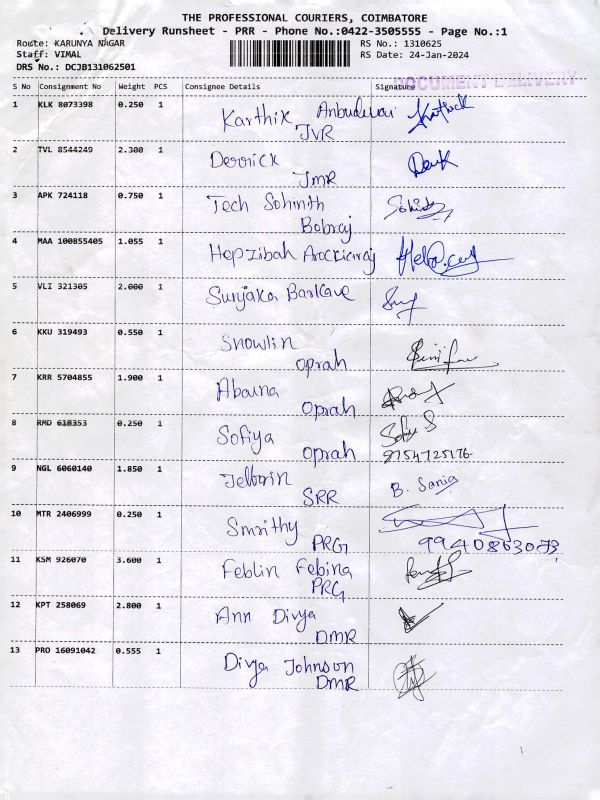 THE PROFESSIONAL COURIERS, COIMBATORE
Delivery Runsheet - PRR - Phone No.:0422-3505555 - Page No.:1
Route: KARUNYA NAGAR RS No.: 1310625
Staff: VIMAL RS Date: 24-Jan-2024
DRS No.: DCJB131062501
DOCUMENT DELIVERY
S No Consignment No Weight PCS Consignee Details Signature
1 KLK 8073398 0.250 1 Karthik Anbuduvai
JVR
2 TVL 8544249 2.300 1 Derrick
JMR
3 APK 724118 0.750 1 Tech Sohinth
Bobraj
4 MAA 100855405 1.055 1 Hepzibah Arockiaraj
5 VLI 321305 2.000 1
6 KKU 319493 0.550 1 Snowlin
Oprah
7 KRR 5704855 1.900 1 Abaina
Oprah
8 RMD 618353 0.250 1 Sofiya
Oprah 9754725176
9 NGL 6060140 1.850 1 Jelbrin B. Sania
SRR
10 MTR 2406999 0.250 1 Smrithy
PRG 9940863073
11 KSM 926070 3.600 1 Feblin Febina
PRG
12 KPT 258069 2.800 1 Ann Divya
DMR
13 PRO 16091042 0.555 1 Divya Johnson
DMR